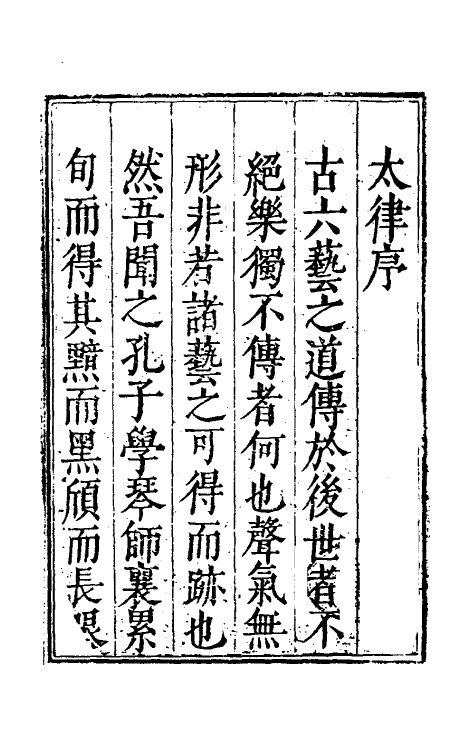 太律序
古六藝之道傳於後世者不
絕樂獨不傳者何也聲氣無
形非若諸藝之可得而跡也
然吾聞之孔子學琴師襄累
旬而得其黯而黑頎而長眼